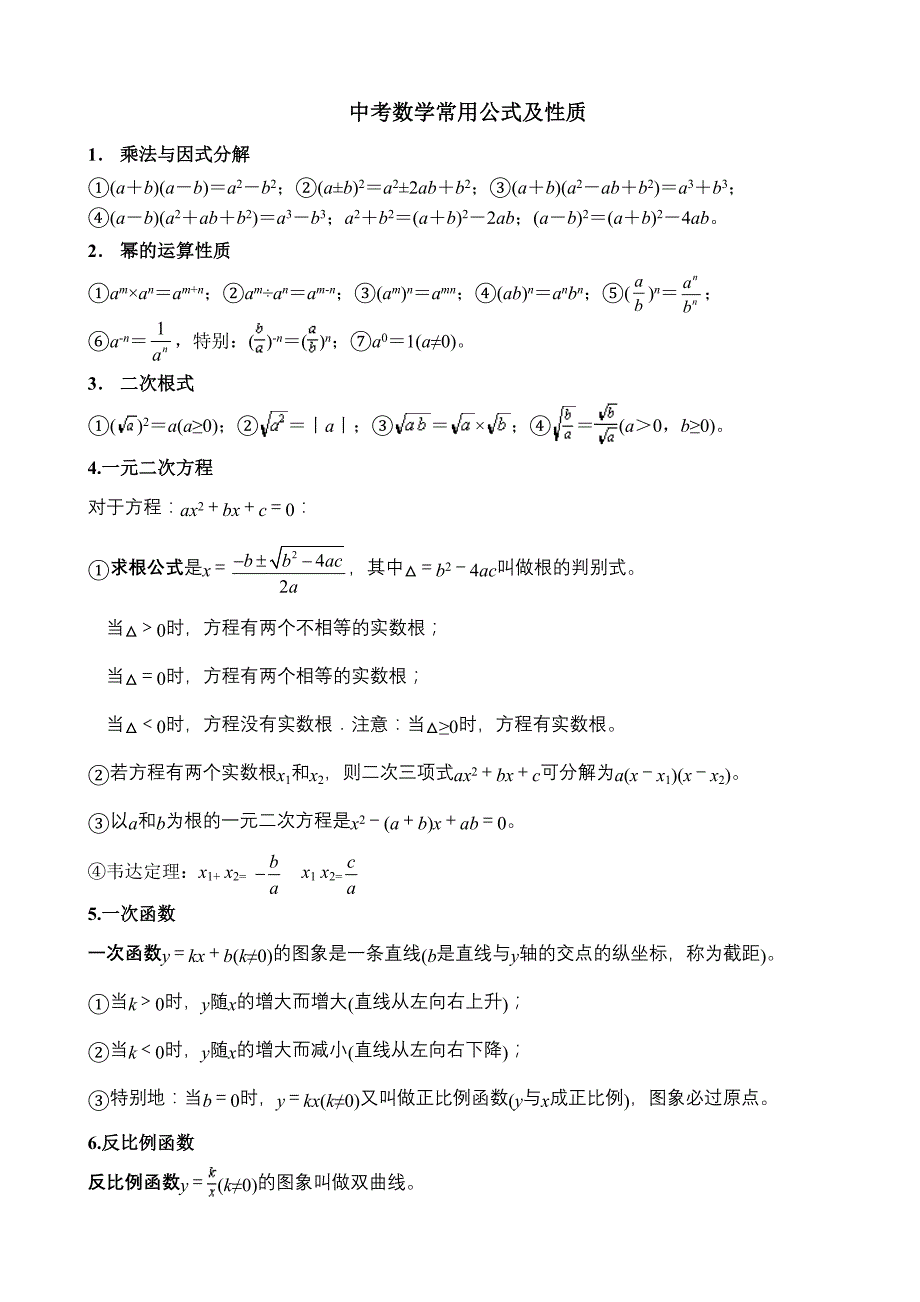 中考数学常用公式及性质
1． 乘法与因式分解
①(a＋b)(a－b)＝a²－b²；②(a±b)²＝a²±2ab＋b²；③(a＋b)(a²－ab＋b²)＝a³＋b³；
④(a－b)(a²＋ab＋b²)＝a³－b³；a²＋b²＝(a＋b)²－2ab；(a－b)²＝(a＋b)²－4ab。
2． 幂的运算性质
①aᵐ×aⁿ＝aᵐ⁺ⁿ；②aᵐ÷aⁿ＝aᵐ⁻ⁿ；③(aᵐ)ⁿ＝aᵐⁿ；④(ab)ⁿ＝aⁿbⁿ；⑤(a/b)ⁿ＝aⁿ/bⁿ；
⑥a⁻ⁿ＝1/aⁿ，特别：(b/a)⁻ⁿ＝(a/b)ⁿ；⑦a⁰＝1(a≠0)。
3． 二次根式
①(√a)²＝a(a≥0)；②√a²＝丨a丨；③√ab＝√a×√b；④√(b/a)＝√b/√a(a＞0，b≥0)。
4.一元二次方程
对于方程：ax²＋bx＋c＝0：
①求根公式是x＝(−b±√(b²−4ac))/2a，其中△＝b²－4ac叫做根的判别式。
当△＞0时，方程有两个不相等的实数根；
当△＝0时，方程有两个相等的实数根；
当△＜0时，方程没有实数根．注意：当△≥0时，方程有实数根。
②若方程有两个实数根x₁和x₂，则二次三项式ax²＋bx＋c可分解为a(x－x₁)(x－x₂)。
③以a和b为根的一元二次方程是x²－(a＋b)x＋ab＝0。
④韦达定理：x₁+ x₂= −b/a x₁ x₂=c/a
5.一次函数
一次函数y＝kx＋b(k≠0)的图象是一条直线(b是直线与y轴的交点的纵坐标，称为截距)。
①当k＞0时，y随x的增大而增大(直线从左向右上升)；
②当k＜0时，y随x的增大而减小(直线从左向右下降)；
③特别地：当b＝0时，y＝kx(k≠0)又叫做正比例函数(y与x成正比例)，图象必过原点。
6.反比例函数
反比例函数y＝k/x(k≠0)的图象叫做双曲线。